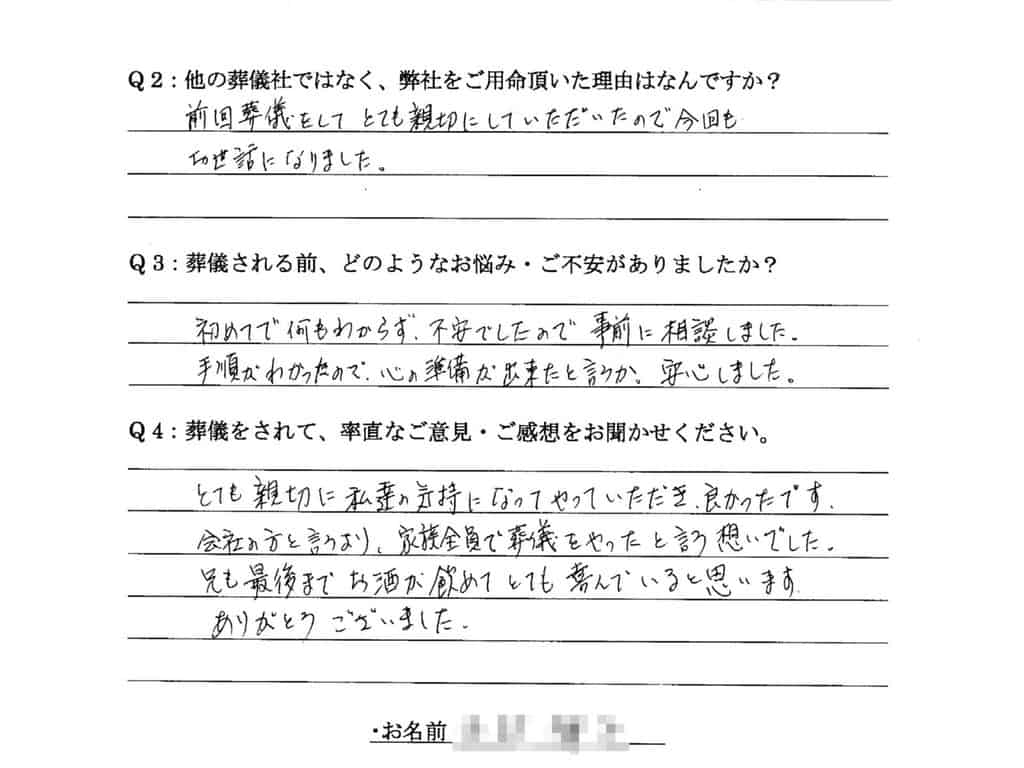 Q2：他の葬儀社ではなく、弊社をご用命頂いた理由はなんですか？
前回葬儀をして とても親切にしていただいたので今回も
お世話になりました。
Q3：葬儀される前、どのようなお悩み・ご不安がありましたか？
初めてで何もわからず、不安でしたので 事前に相談しました。
手順がわかったので、心の準備が出来たと言うか、安心しました。
Q4：葬儀をされて、率直なご意見・ご感想をお聞かせください。
とても親切に 私達の気持になってやっていただき、良かったです、
会社の方と言うより、家族全員で葬儀をやったと言う想いでした。
兄も最後まで お酒が飲めて とても 喜んでいると思います
ありがとう ございました。
・お名前